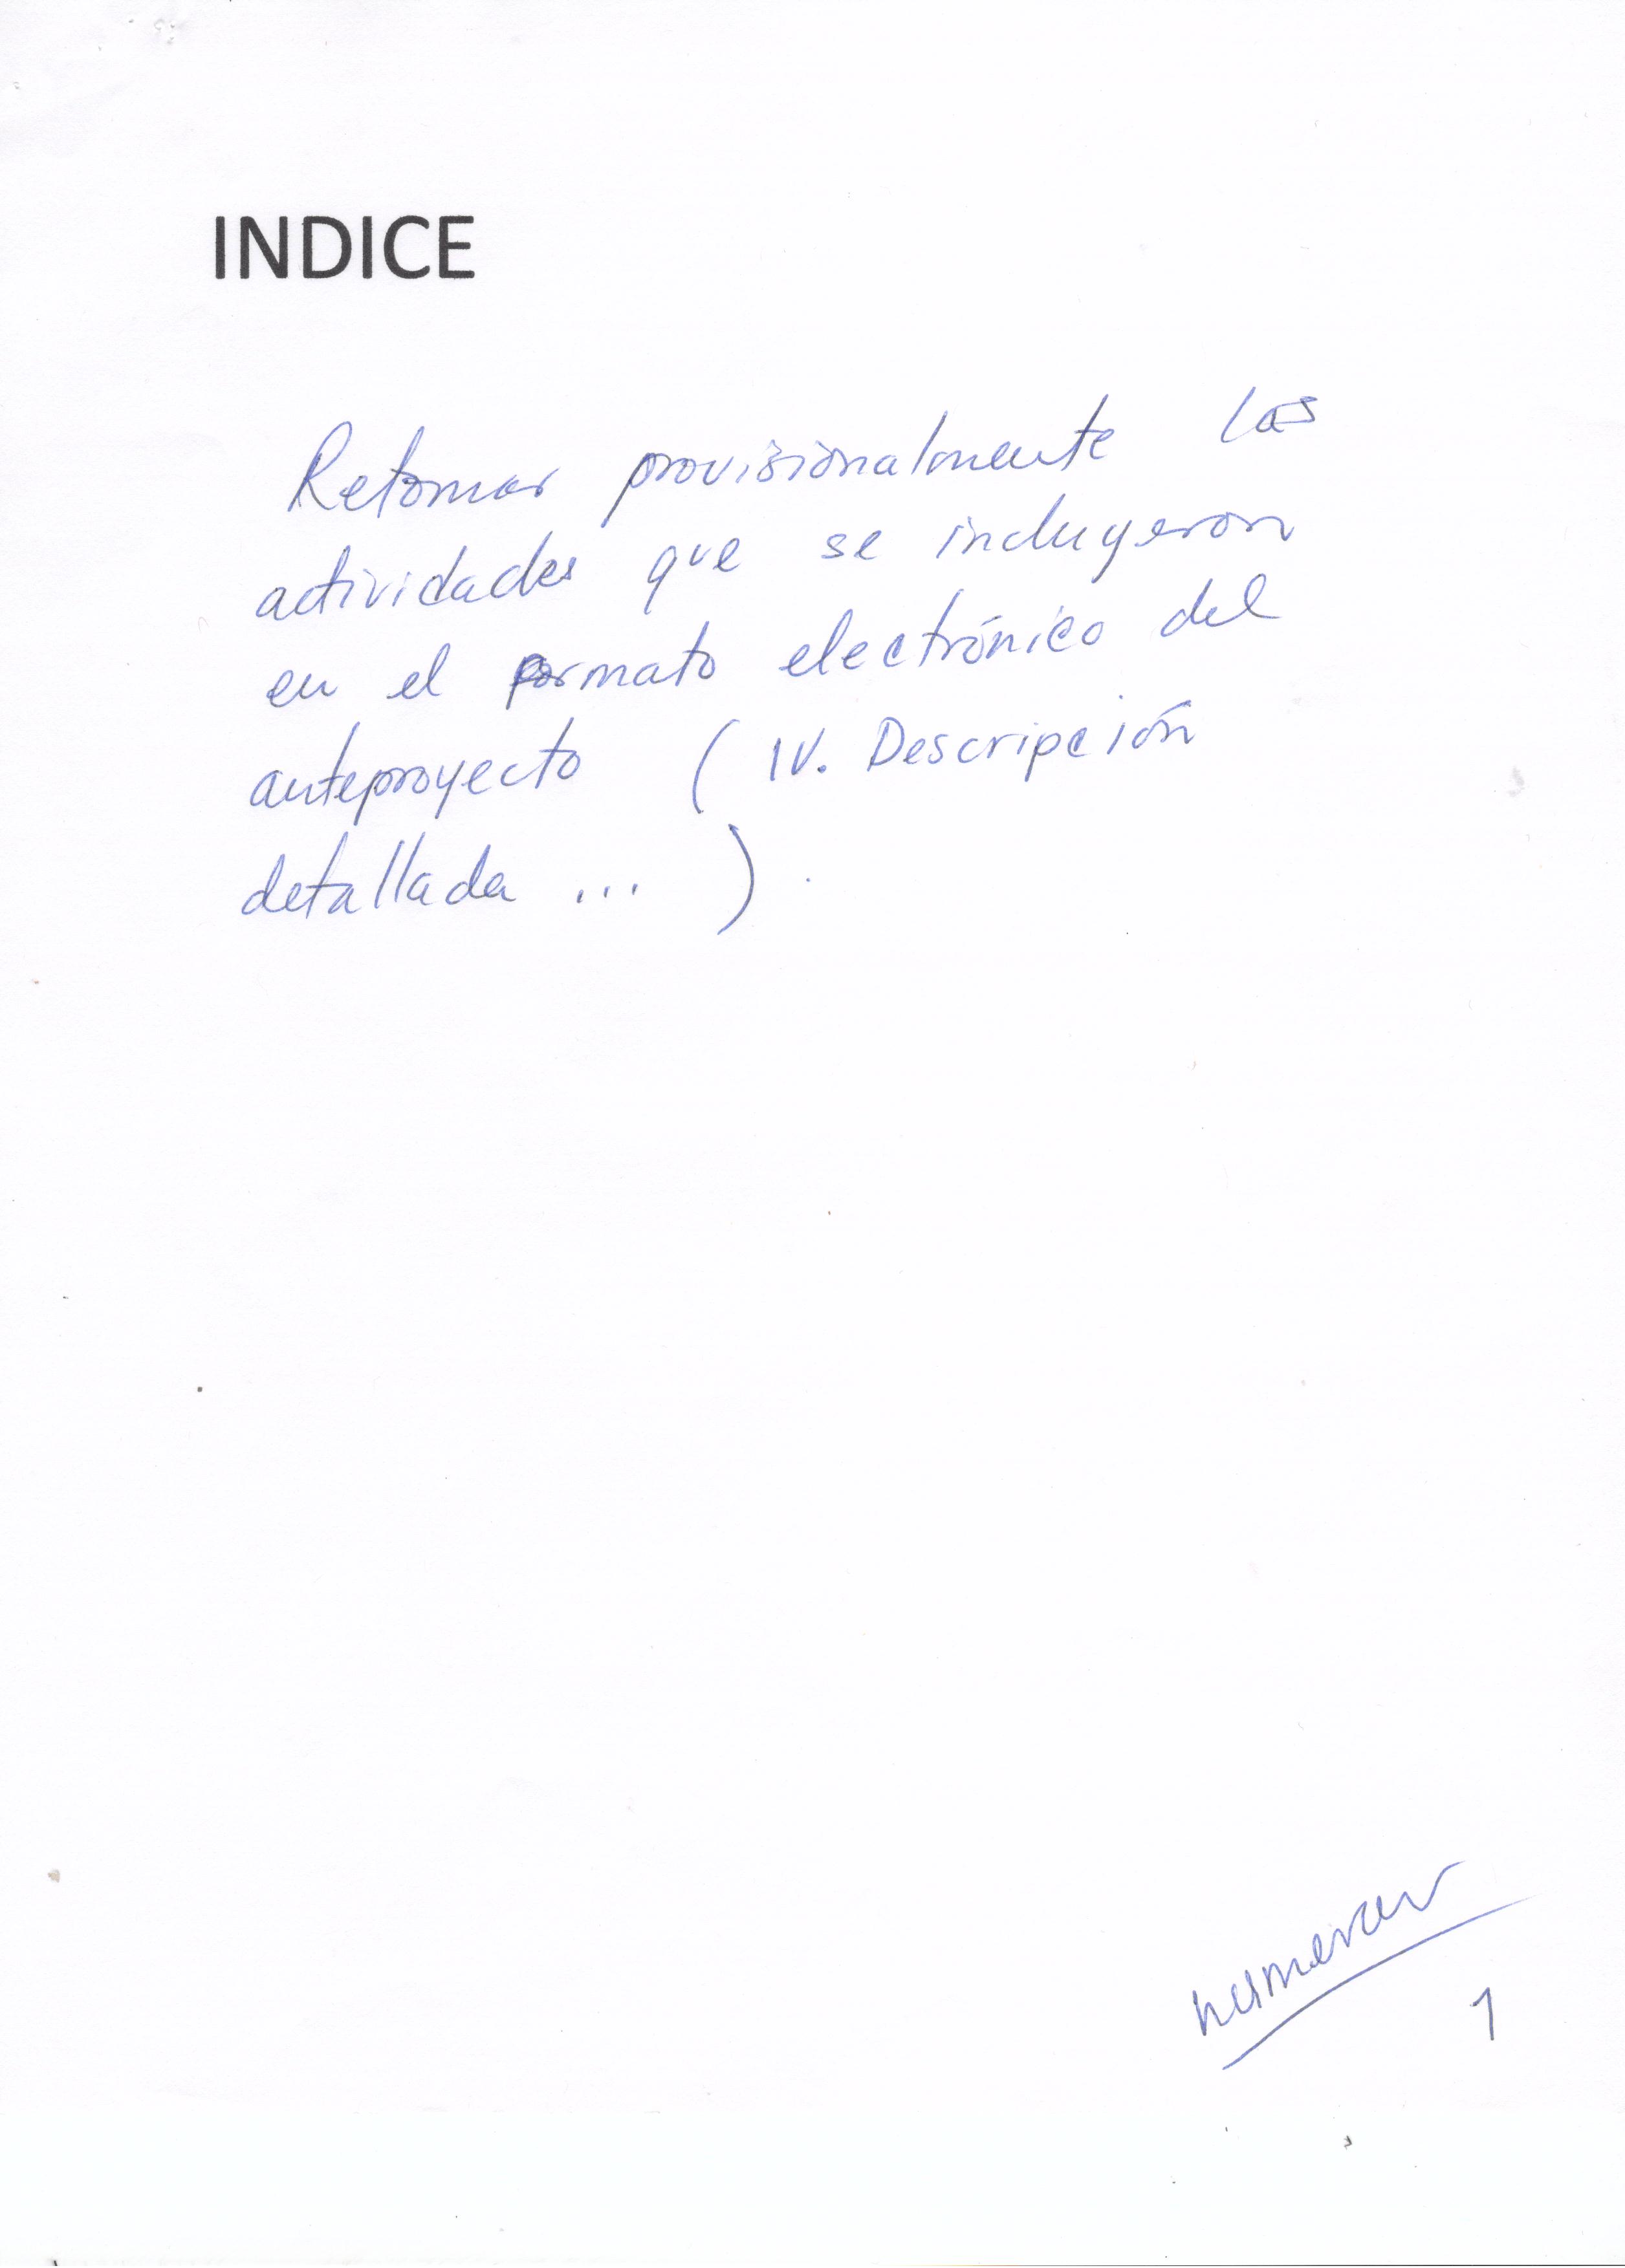 INDICE
Retomar provisionalmente las
actividades que se incluyeron
en el formato electrónico del
anteproyecto ( IV. Descripción
detallada ... ) .
1